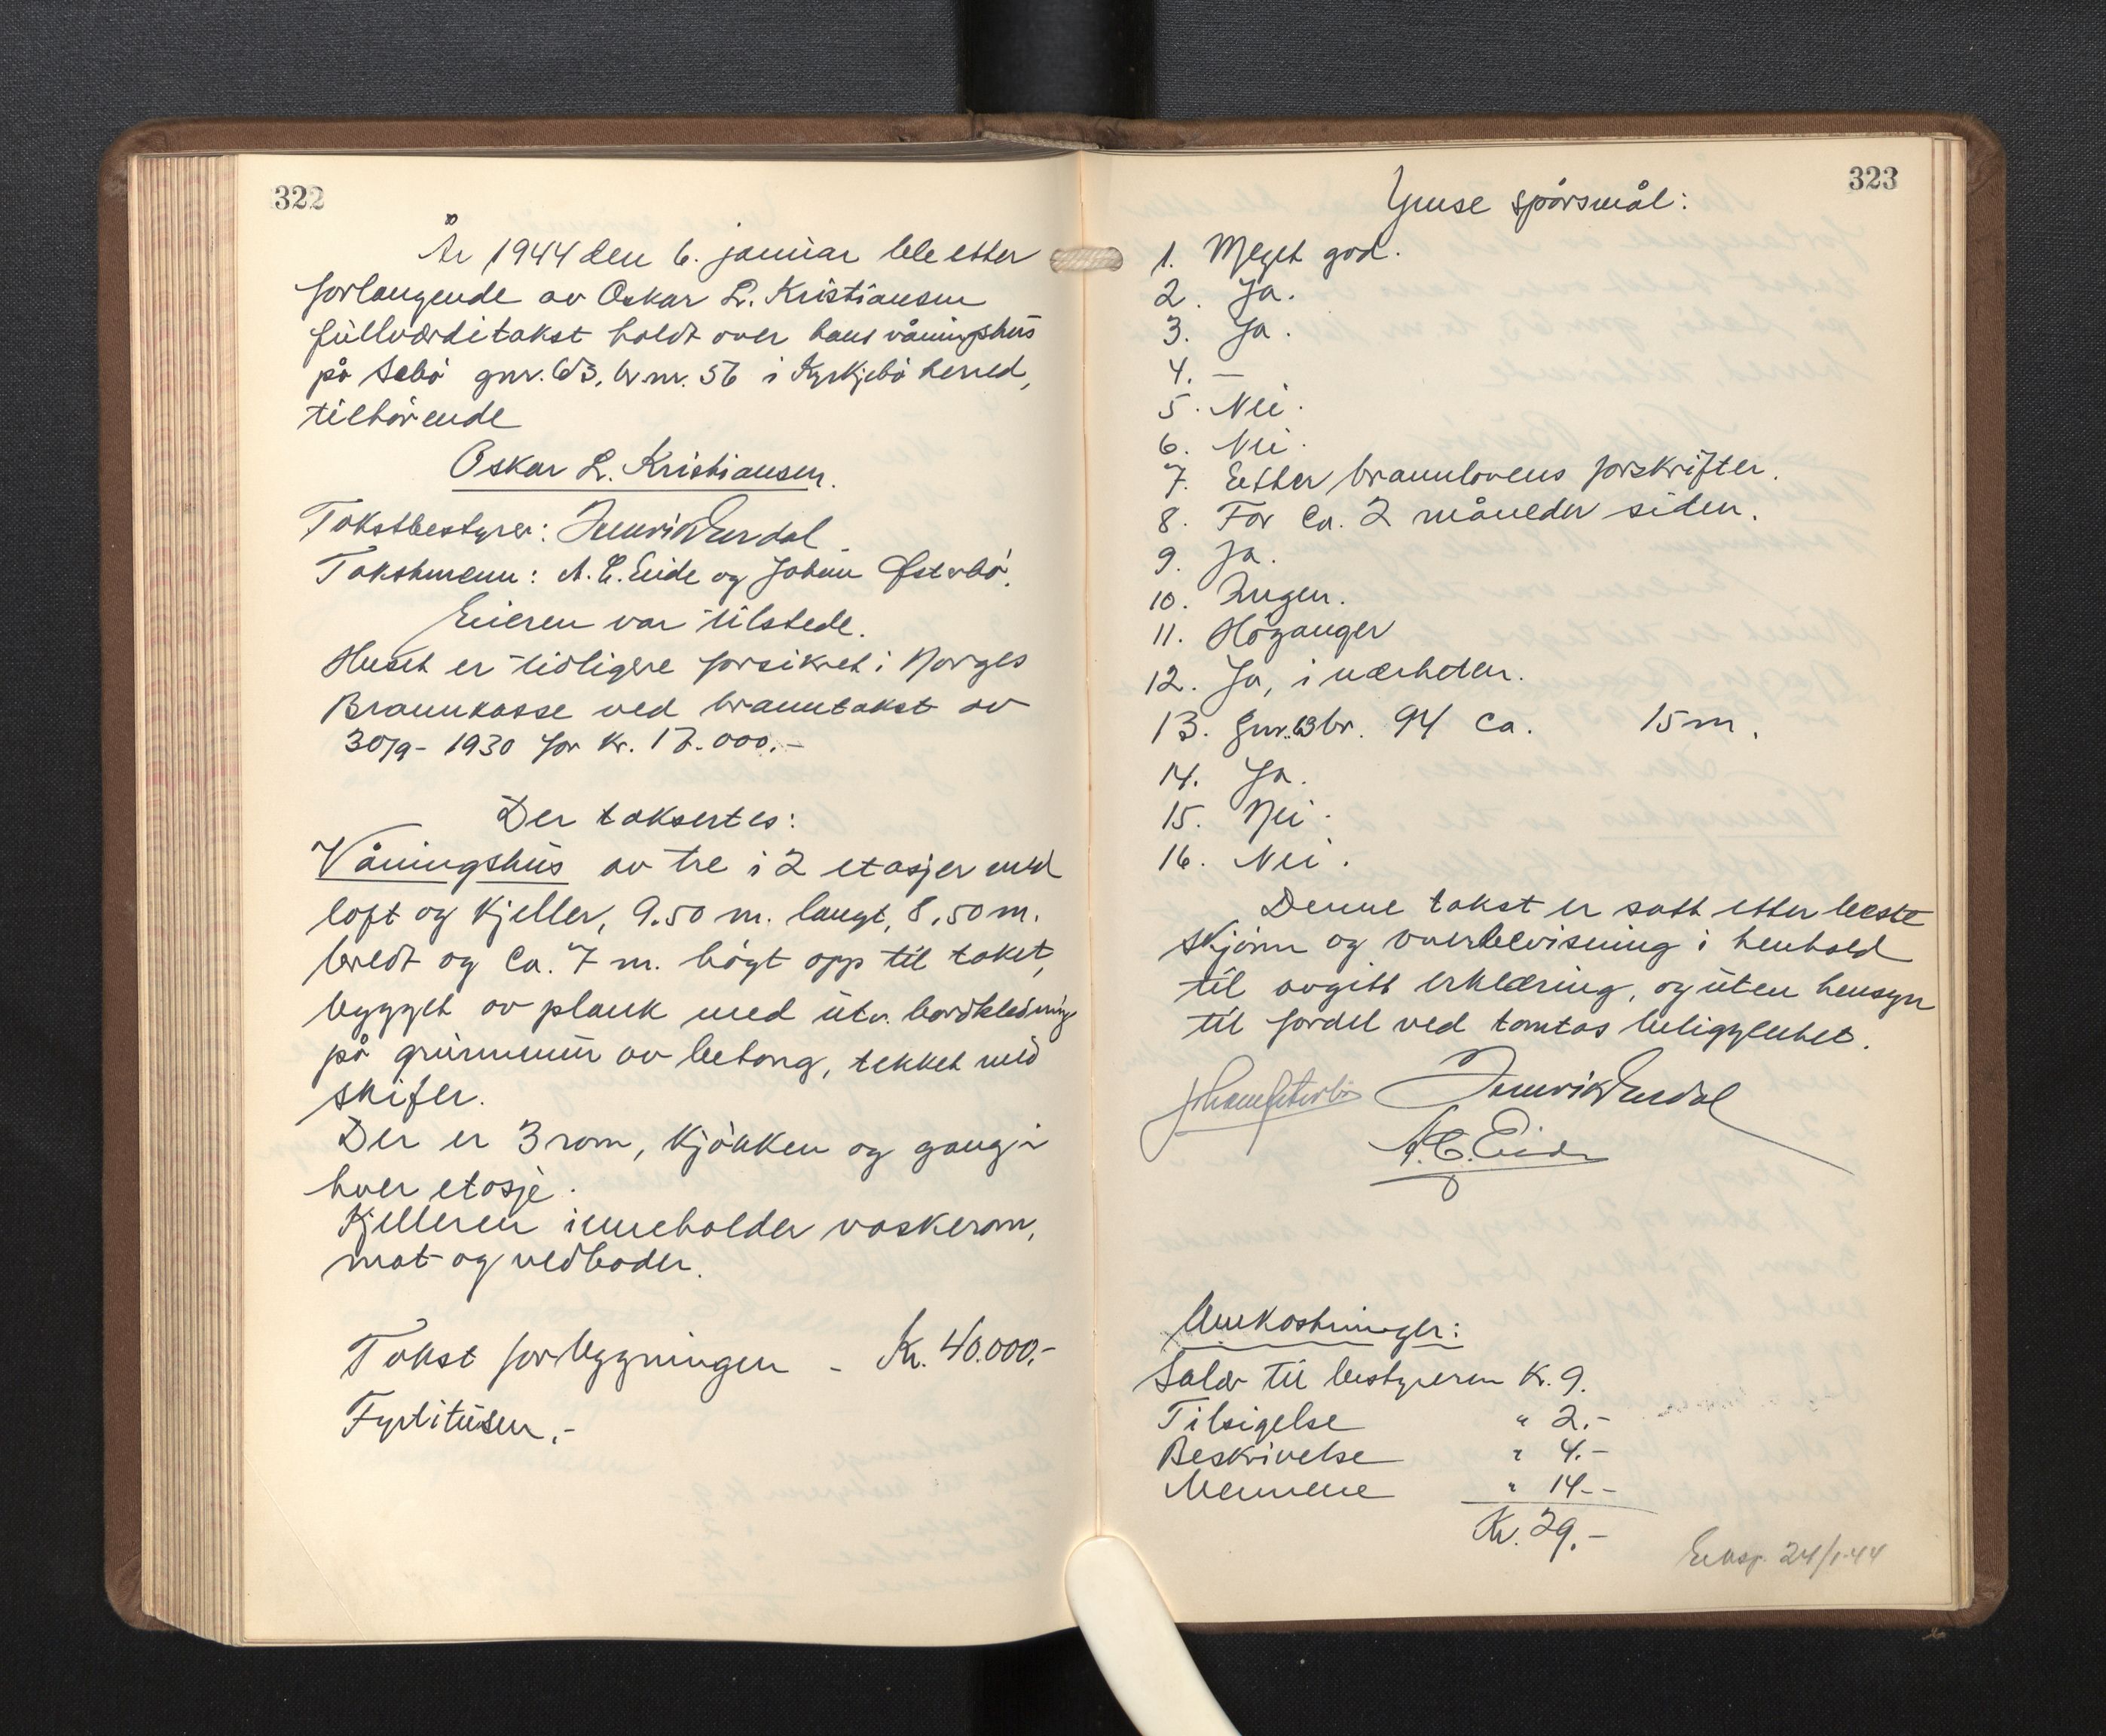 322
År 1944 den 6. januar ble etter
forlangende av Oskar L. Kristiansen
fullværditakst holdt over hans våningshus
på Sebö gnr. 63, br.nr. 56 i Kyrkjebö herred,
tilhörende
Oskar L. Kristiansen.
Takstbestyrer: Henrik Eurdal.
Takstmenn: A. E. Eide og Johan Østerbö.
Eieren var tilstede.
Huset er tidligere forsikret i Norges
Brannkasse ved branntakst av
30/9-1930 for kr. 17.000.-
Der taksertes:
Våningshus av tre i 2 etasjer med
loft og kjeller, 9.50 m. langt, 8.50 m.
bredt og ca. 7 m. högt opp til taket,
bygget av plank med utv. bordkledning
på grunnmur av betong, tekket med
skifer.
Der er 3 rom, kjökken og gang i
hver etasje.
Kjelleren inneholder vaskerom,
mat og vedboder.
Takst for bygningen - Kr. 40.000.-
Fyrtitusen.-
323
Ymse spörsmål:
1. Meget god.
2. Ja.
3. Ja.
4. —
5. Nei.
6. Nei.
7. Etter brannlovens forskrifter.
8. For ca. 2 måneder siden.
9. Ja.
10. Ingen.
11. Höyanger
12. Ja, i nærheten.
13. gnr. 63 br. 94 ca. 15 m.
14. Ja.
15. Nei.
16. Nei.
Denne takst er satt etter beste
skjönn og overbevisning i henhold
til avgitt erklæring, og uten hensyn
til fordel ved tomtas beliggenhet.
Johan Østerbö Henrik Eurdal
A. E. Eide
Omkostninger:
Salær til bestyreren Kr. 9.
Tilsigelse " 2.-
Beskrivelse " 4.-
Mennene " 14.-
Kr. 29.-
Eksp. 24/1-44